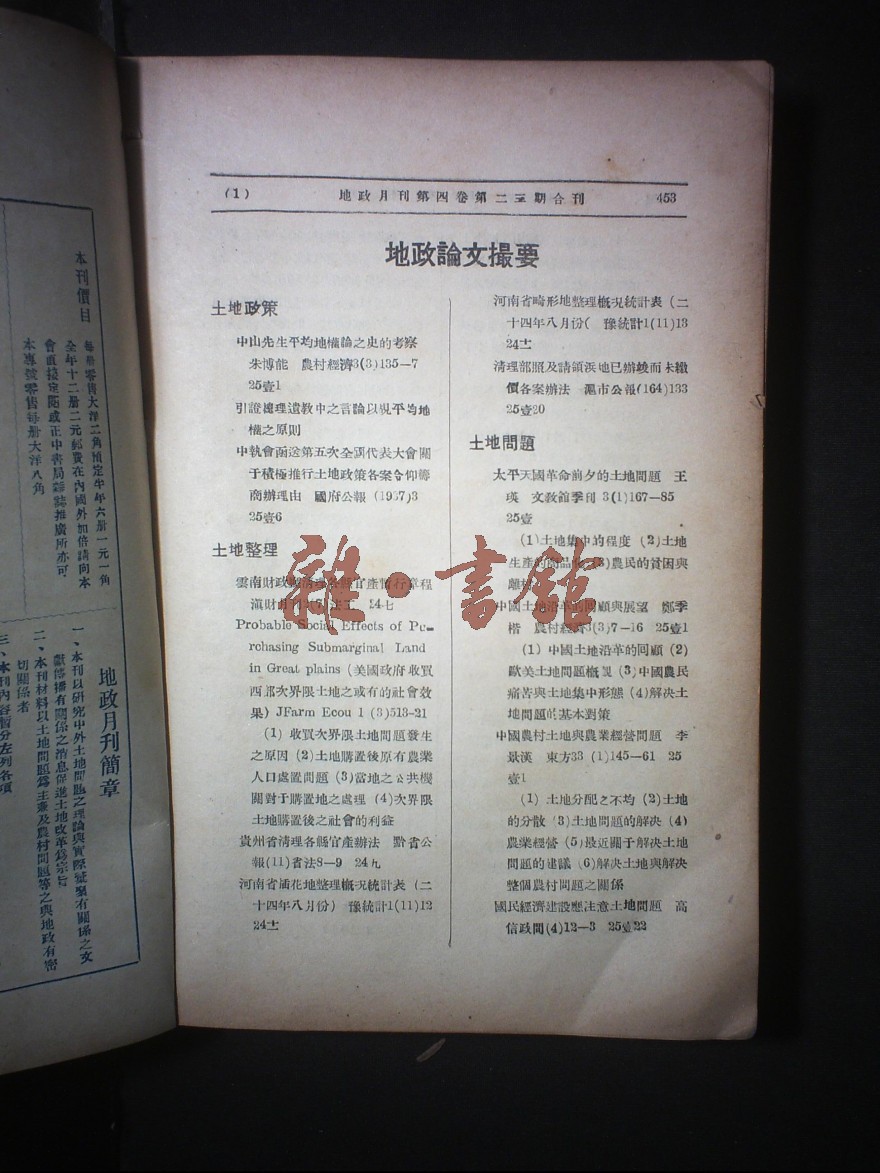 (1)　地政月刊第四卷第二三期合刊　453
地政論文撮要
土地政策
中山先生平均地權論之史的考察
朱博能　農村經濟3(3)135—7
25壹1
引證總理遺教中之言論以覘平均地
權之原則
中執會函送第五次全國代表大會關
于積極推行土地政策各案令仰籌
商辦理由　國府公報 (1937)3
25壹6
土地整理
雲南財政廳清理各縣官產暫行章程
滇財月刊
24七
Probable Social Effects of Pu-
rchasing Submarginal Land
in Great plains (美國政府收買
西部次界限土地之或有的社會效
果) JFarm Ecou 1 (3)513-21
(1) 收買次界限土地問題發生
之原因 (2)土地購置後原有農業
人口處置問題 (3)當地之公共機
關對于購置地之處理 (4)次界限
土地購置後之社會的利益
貴州省清理各縣官產辦法　黔省公
報(11)省法8—9　24九
河南省插花地整理概況統計表 (二
十四年八月份)　豫統計1(11)12
24十一
河南省畸形地整理概況統計表 (二
十四年八月份(　豫統計1(11)13
24十一
清理部照及請領浜地已辦竣而未繳
價各案辦法　滬市公報(164)133
25壹20
土地問題
太平天國革命前夕的土地問題　王
瑛　文教館季刊 3(1)167—85
25壹
(1)土地集中的程度 (2)土地
生產的商品化 (3)農民的貧困與
離村
中國土地沿革的回顧與展望　鄭季
楷　農村經濟3(3)7—16　25壹1
(1) 中國土地沿革的回顧 (2)
歐美土地問題概觀 (3)中國農民
痛苦與土地集中形態 (4)解決土
地問題的基本對策
中國農村土地與農業經營問題　李
景漢　東方33 (1)145—61　25
壹1
(1) 土地分配之不均 (2)土地
的分散 (3)土地問題的解決 (4)
農業經營 (5)最近關于解決土地
問題的建議 (6)解決土地與解決
整個農村問題之關係
國民經濟建設應注意土地問題　高
信政聞(4)12—3　25壹22
雜·書館
本刊價目
每册零售大洋二角預定半年六册一元一角
全年十二册二元郵費在內國外加倍請向本
會直接定閱或正中書局雜誌推廣所亦可
本專號零售每册大洋八角
地政月刊簡章
一、本刊以研究中外土地問題之理論與實際徵集有關係之文
獻傳播有關係之消息促進土地改革爲宗旨
二、本刊材料以土地問題爲主兼及農村問題等之與地政有密
切關係者
三、本刊內容暫分左列各項